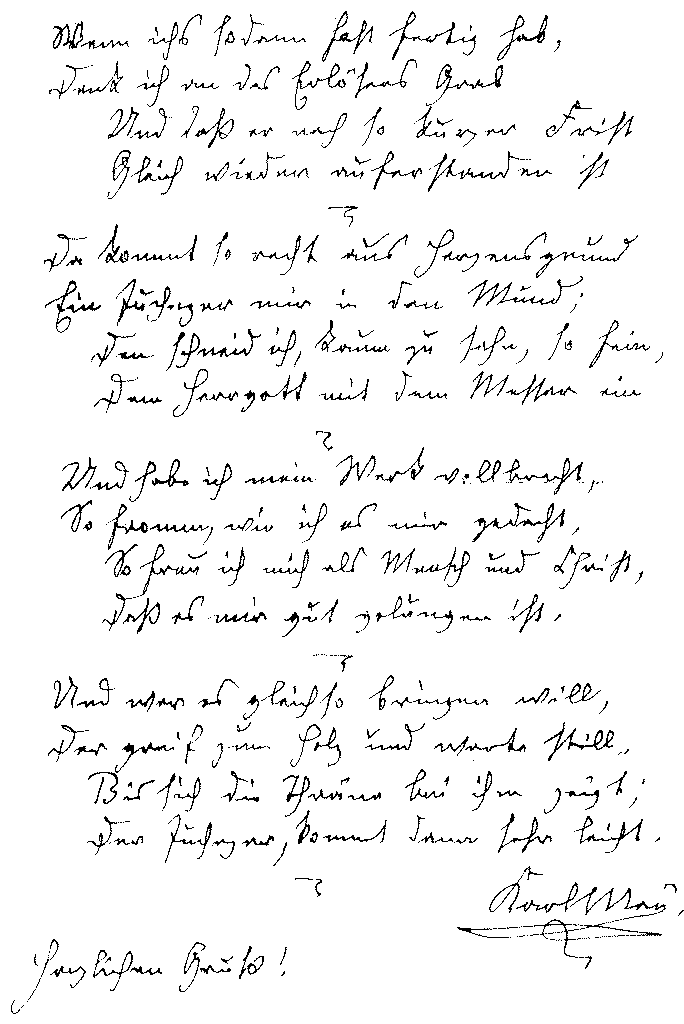 Wenn ichs sodann fast fertig hab,
Denk ich an des Erlösers Grab
Und daß er nach so kurzer Frist
Gleich wieder auferstanden ist
Da kommt so recht aus Herzensgrund
Ein Juchezer mir in den Mund;
Den schneid ich, kaum zu sehn, so fein,
Dem Herrgott mit dem Messer ein
Und habe ich mein Werk vollbracht,
So fromm, wie ich es mir gedacht,
So freu ich mich als Mensch und Christ,
Daß es mir gut gelungen ist.
Und wer es gleichso bringen will,
Der greif zum Holz und warte still,
Bis sich die Thräne bei ihm zeigt;
Der Juchezer, kommt dann sehr leicht.
Karl May.
Herzlichen Gruß!